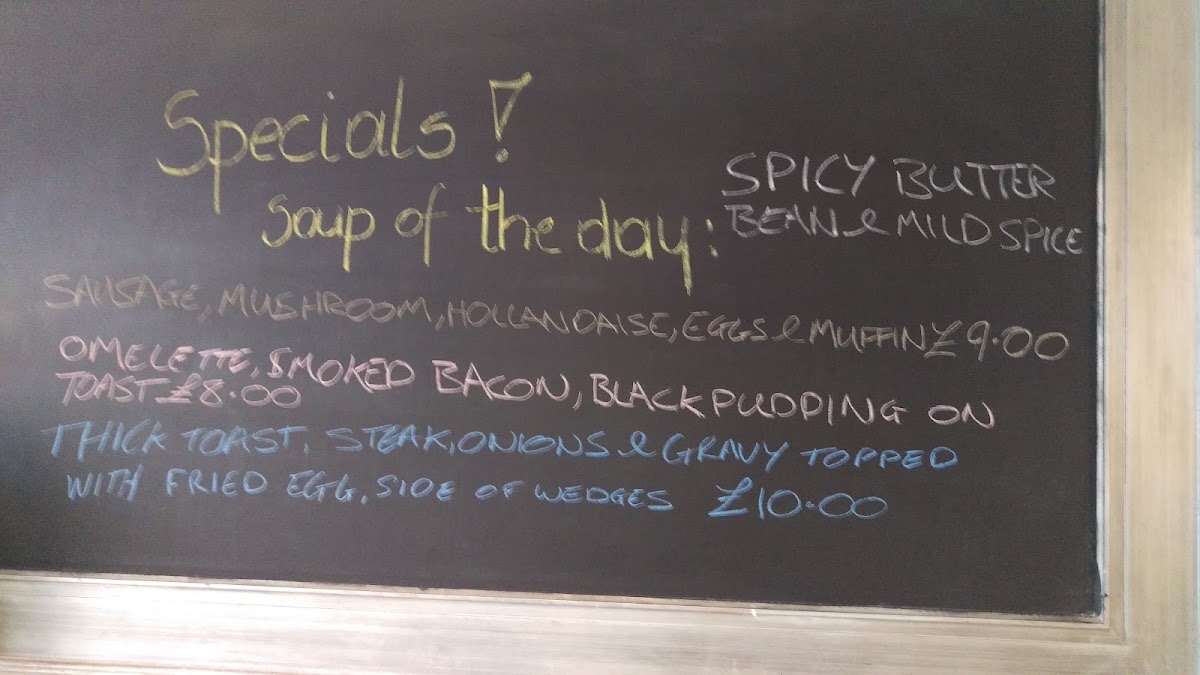 Specials!
soup of the day:
SPICY BUTTER
BEAN & MILD SPICE
SAUSAGE, MUSHROOM, HOLLANDAISE, EGGS & MUFFIN £9.00
OMELETTE, SMOKED BACON, BLACK PUDDING ON
TOAST £8.00
THICK TOAST. STEAK, ONIONS & GRAVY TOPPED
WITH FRIED EGG. SIDE OF WEDGES £10.00